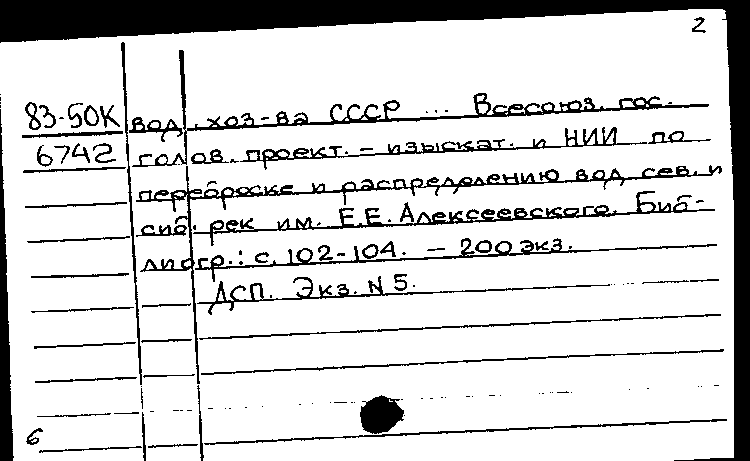 2
83-50К вод. хоз-ва СССР ... Всесоюз. гос.
6742 голов. проект.- изыскат. и НИИ по
переброске и распределению вод сев. и
сиб. рек им. Е.Е. Алексеевского. Биб-
лиогр.: с. 102-104. — 200 экз.
ДСП. Экз. N 5.
6